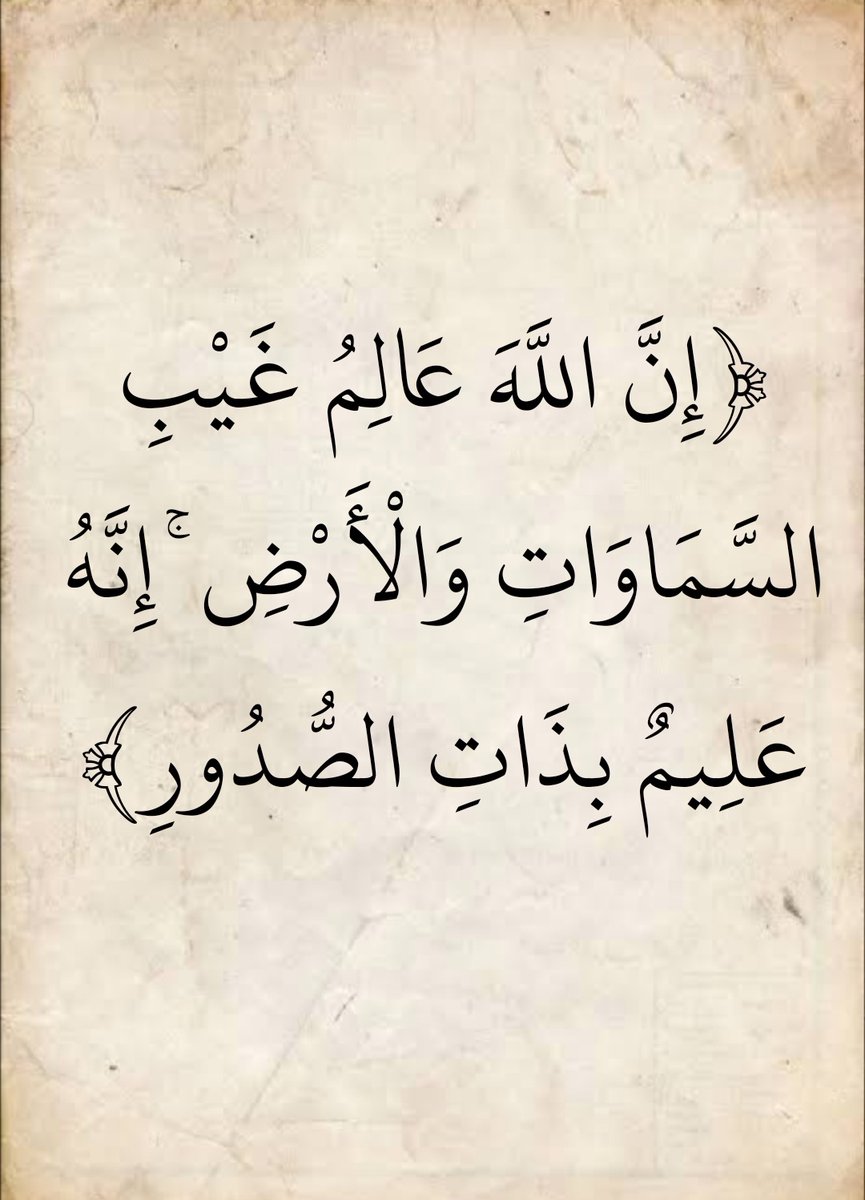 ﴿إِنَّ اللَّهَ عَالِمُ غَيْبِ
السَّمَاوَاتِ وَالْأَرْضِ ۚ إِنَّهُ
عَلِيمٌ بِذَاتِ الصُّدُورِ﴾